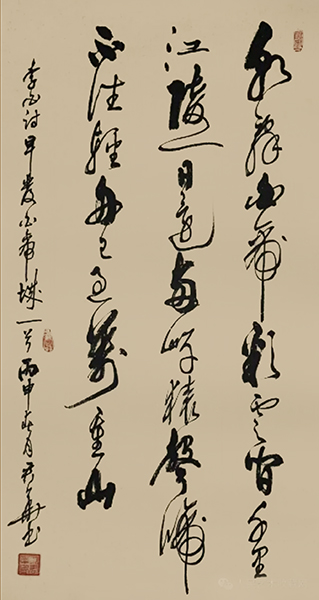 朝辞白帝彩云间千里
江陵一日還兩岸猿聲啼
不住輕舟已過萬重山
李白诗早發白帝城一首丙申春月華书